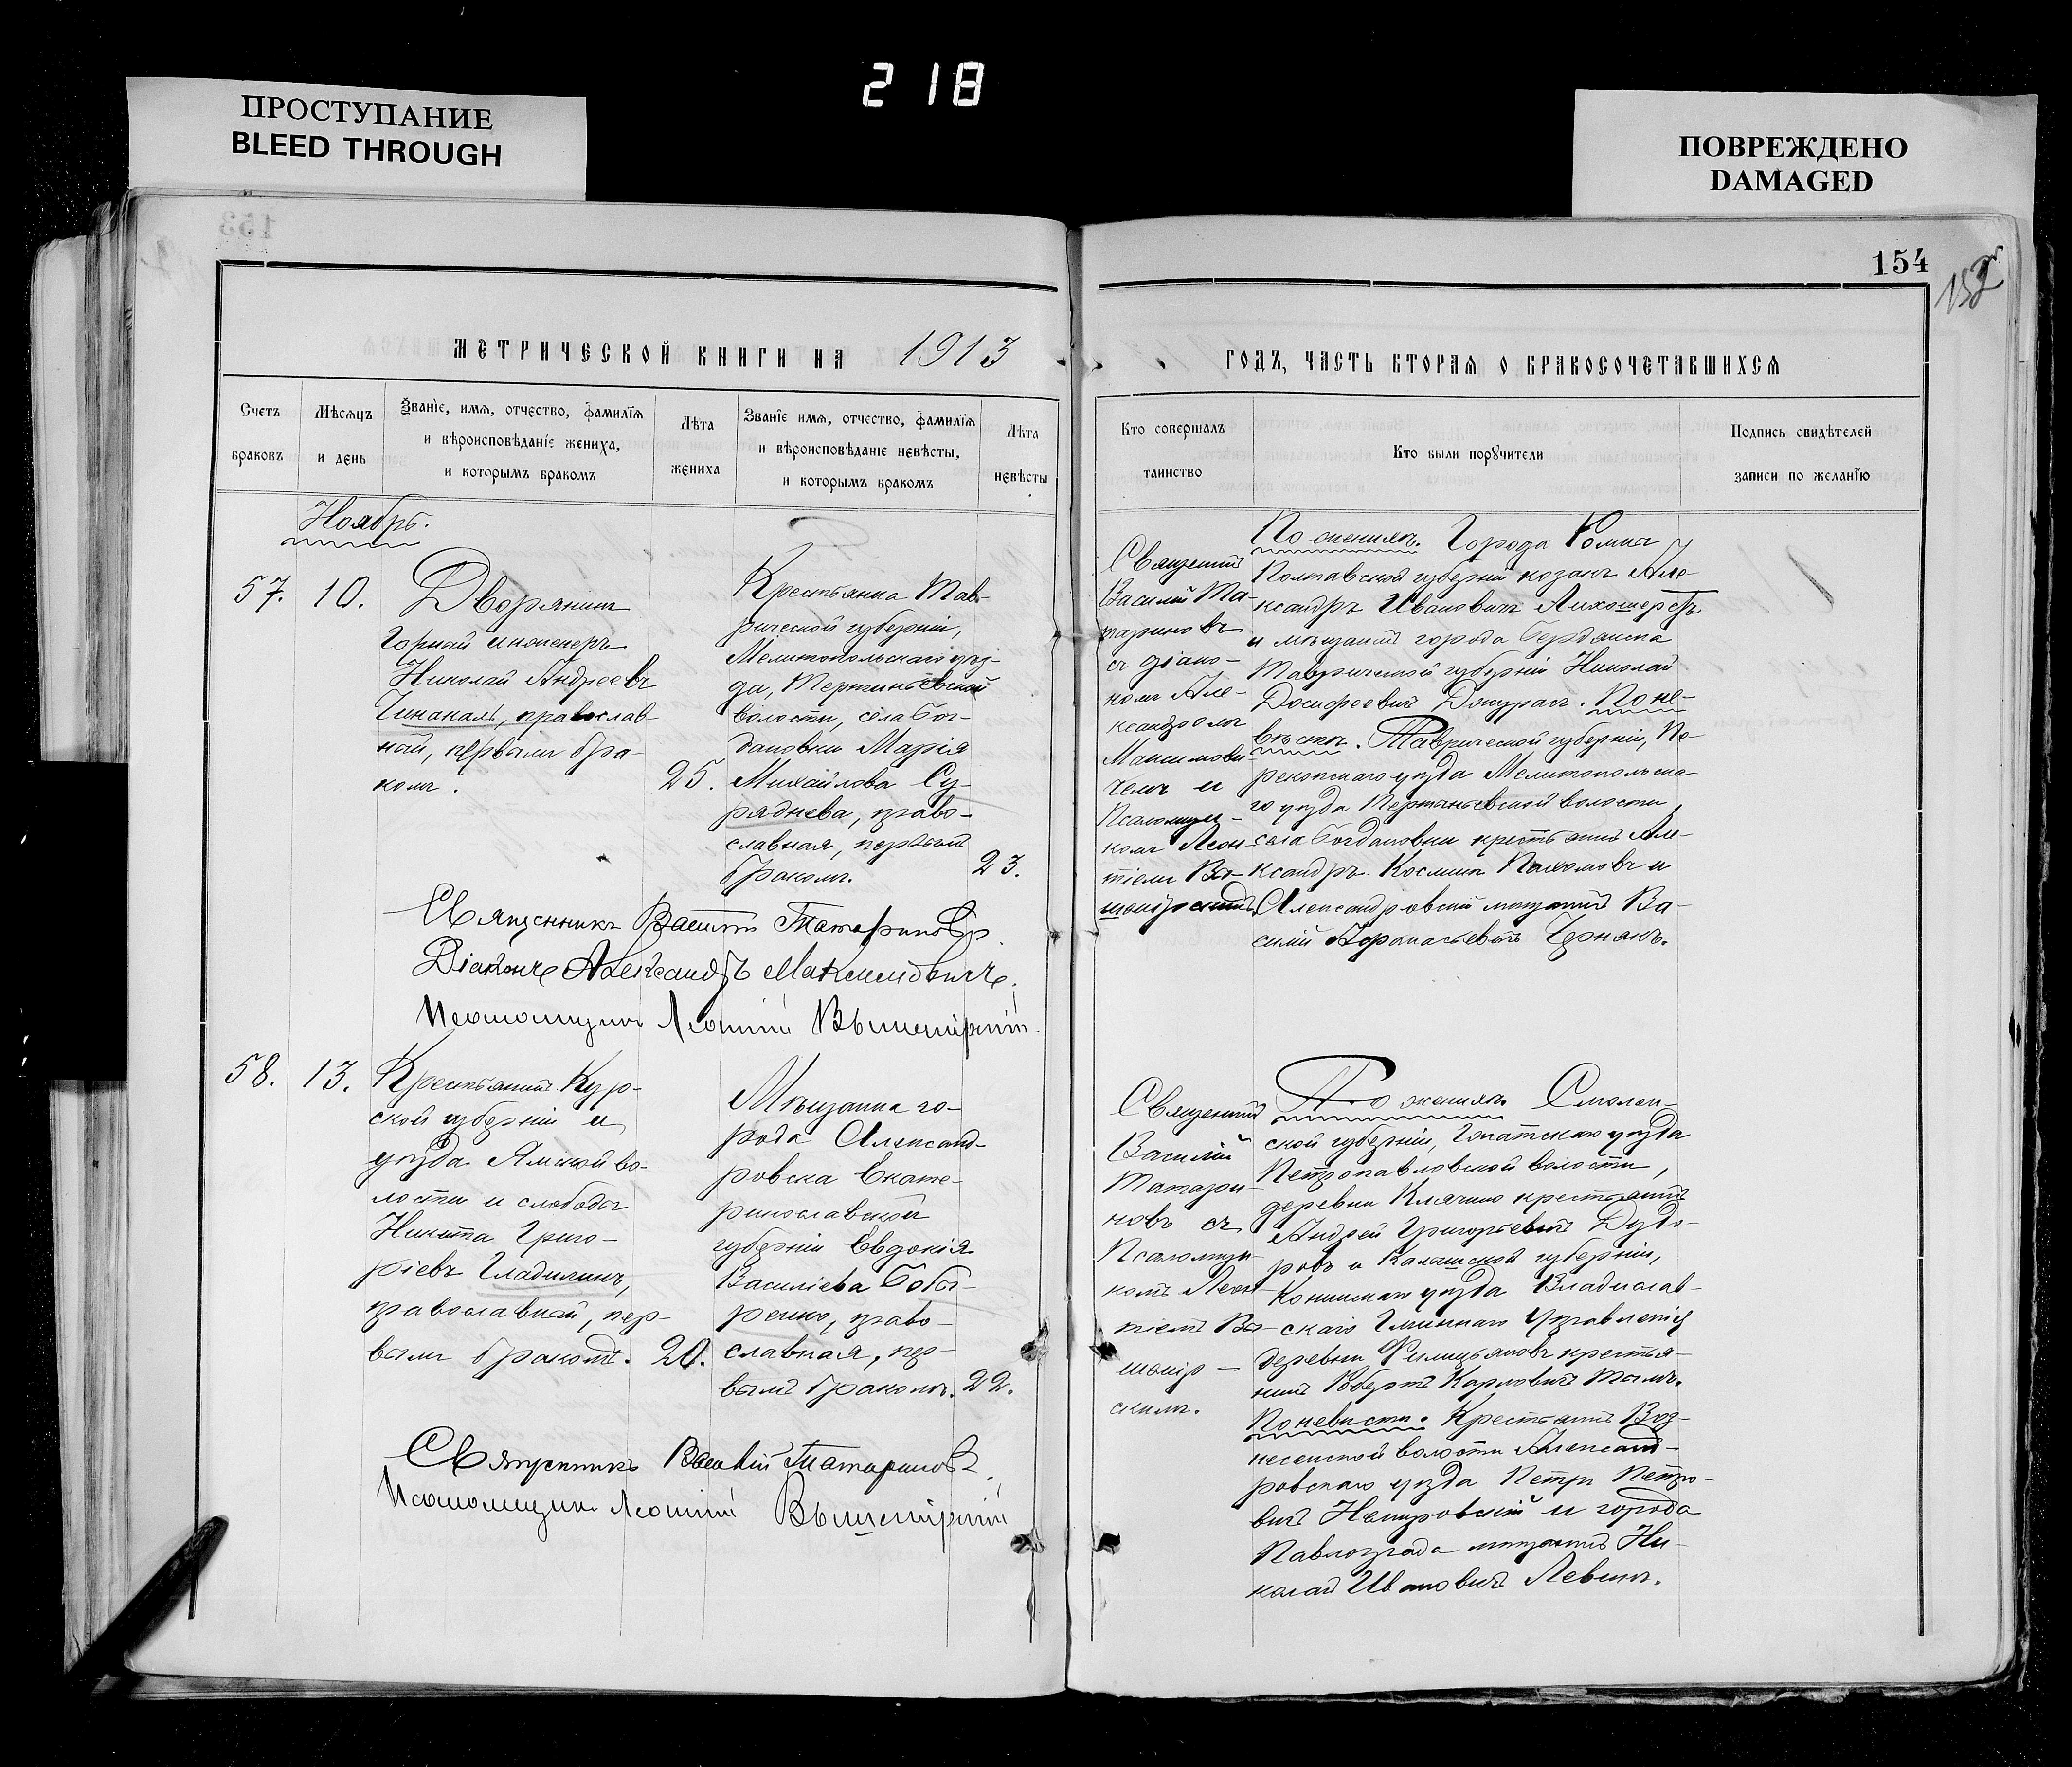 218
ПРОСТУПАНИЕ
BLEED THROUGH
ПОВРЕЖДЕНО
DAMAGED
154
МЕТРИЧЕСКОЙ КНИГИ НА 1913
ГОДЪ, ЧАСТЬ ВТОРАЯ О БРАКОСОЧЕТАВШИХСЯ
Счетъ
браковъ
Мѣсяцъ
и день
Званіе, имя, отчество, фамилія
и вѣроисповѣданіе жениха,
и которымъ бракомъ
Лѣта
жениха
Званіе имя, отчество, фамилія
и вѣроисповѣданіе невѣсты,
и которымъ бракомъ
Лѣта
невѣсты
Кто совершалъ
таинство
Кто были поручители
Подпись свидѣтелей
записи по желанію
Ноябрь.
57.
10.
Дворянинъ
горный инженеръ
Николай Андреевъ
Чинакалъ, православ-
ный, первымъ бра-
комъ.
25.
Крестьянка Тав-
рической губерніи,
Мелитопольскаго уѣз-
да,
волости, села Бог-
дановки Марія
Михайлова Су-
ряднева, право-
славная, первымъ
бракомъ.
23.
Священникъ
Василій Та-
тариновъ
съ діако-
номъ Але-
ксандромъ
Максимови-
чемъ и
Псаломщи-
комъ Леон-
тіемъ Вы-
шемірскимъ
По женихѣ. Города Ромна
Полтавской губерніи козакъ Але-
ксандръ Ивановичъ Лихошерстъ
и мѣщанинъ города Бердянска
Таврической губерніи Николай
Досифеевичъ. По не-
вѣстѣ. Таврической губерніи, Пе-
рекопскаго уѣзда Мелитопольска
го уѣзда волости,
села Богдановки крестьянинъ Але-
ксандръ Косминъ Пахомовъ и
Александровскій мѣщанинъ Ва-
силій Афанасьевичъ Чернякъ.
Священникъ Василій Татариновъ.
Діаконъ Александръ Максимовичъ.
Псаломщикъ Леонтій Вышемірскій.
58.
13.
Крестьянинъ Кур-
ской губерніи и
уѣзда Ямской во-
лости и слободы
Никита Григо-
ріевъ Гладилинъ,
православный, пер-
вымъ бракомъ.
20.
Мѣщанка го-
рода Александ-
ровска Екате-
ринославской
губерніи Евдокія
Василіева Бобы-
ренко, право-
славная, пер-
вымъ бракомъ.
22.
Священникъ
Василій
Татари-
новъ съ
Псаломщи-
комъ Леон-
тіемъ Вы-
шемір-
скимъ.
По женихѣ. Смолен-
ской губерніи, Гжатскаго уѣзда
Петропавловской волости,
деревни крестьянинъ
Андрей Григорьевичъ Дудо-
ровъ и Калишской губерніи,
Конинскаго уѣзда Владислав-
скаго Гминнаго Управленія
деревни крестья-
нинъ Робертъ Карловичъ.
По невѣстѣ. Крестьянинъ Воз-
несенской волости Александ-
ровскаго уѣзда Петръ Петро-
вичъ и города
Павлограда мѣщанинъ Ни-
колай Ивановичъ Левинъ.
Священникъ Василій Татариновъ.
Псаломщикъ Леонтій Вышемірскій